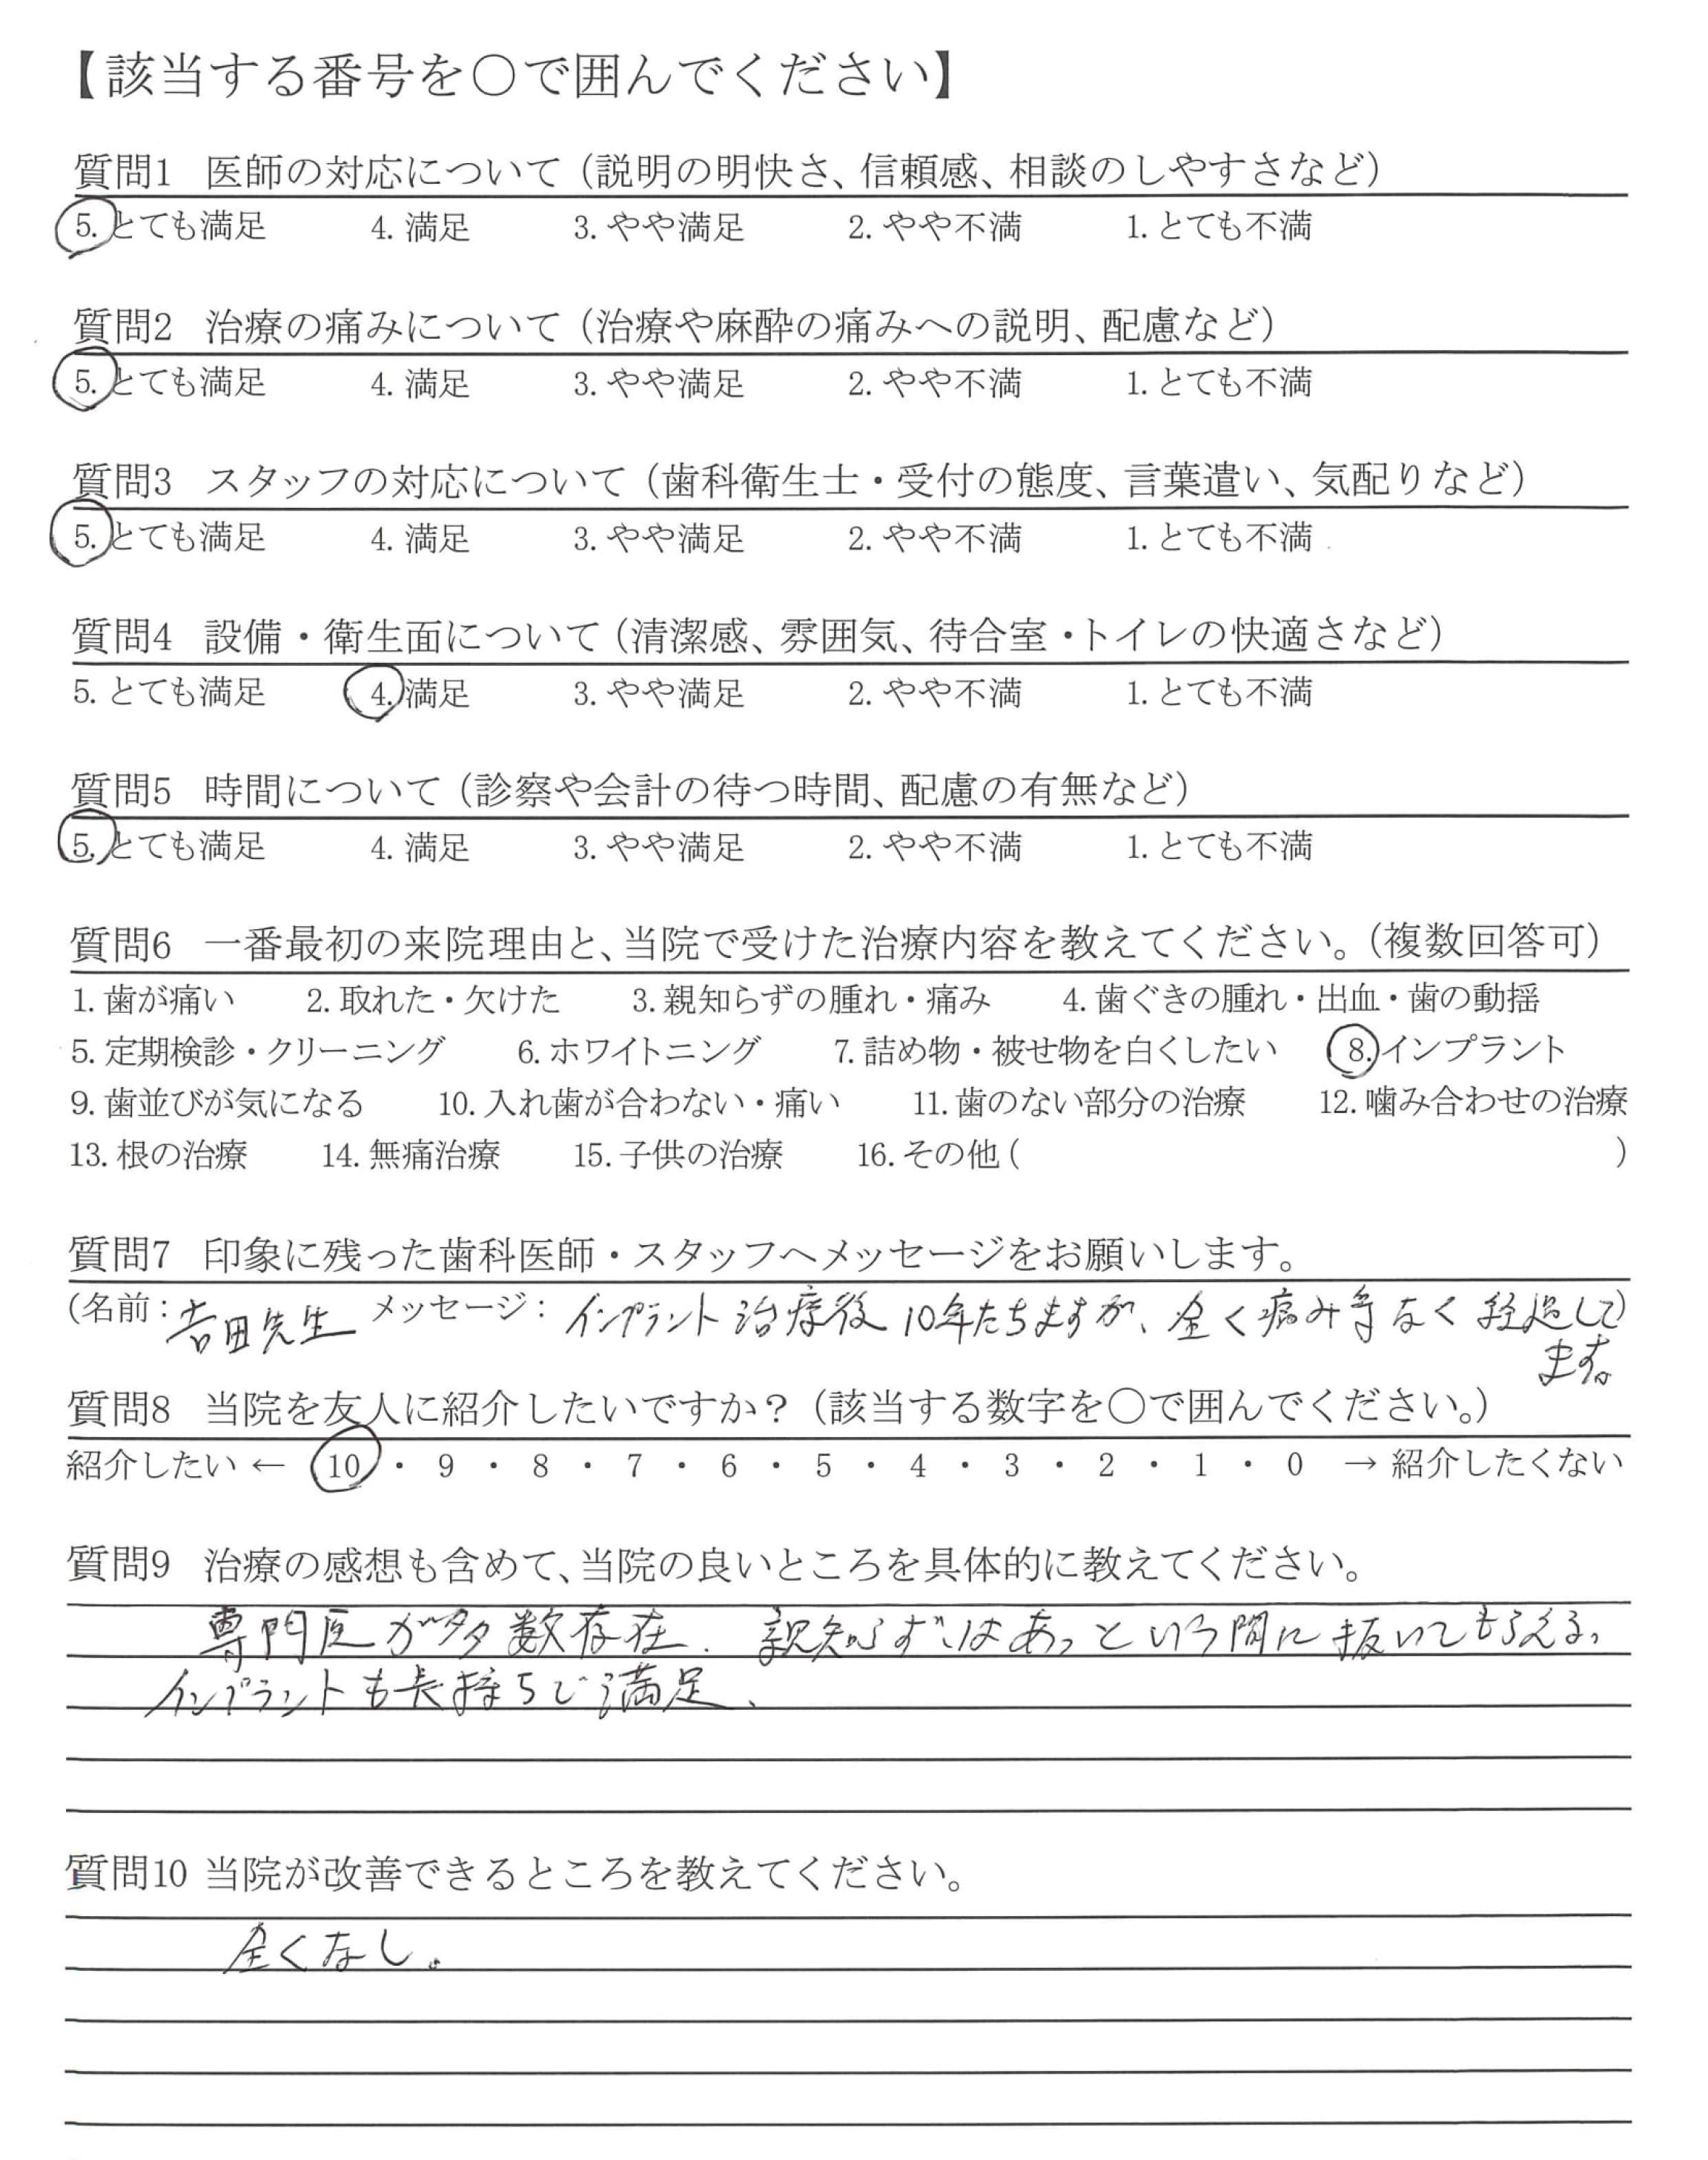 【該当する番号を〇で囲んでください】
質問1 医師の対応について（説明の明快さ、信頼感、相談のしやすさなど）
5. とても満足 4. 満足 3. やや満足 2. やや不満 1. とても不満
質問2 治療の痛みについて（治療や麻酔の痛みへの説明、配慮など）
5. とても満足 4. 満足 3. やや満足 2. やや不満 1. とても不満
質問3 スタッフの対応について（歯科衛生士・受付の態度、言葉遣い、気配りなど）
5. とても満足 4. 満足 3. やや満足 2. やや不満 1. とても不満
質問4 設備・衛生面について（清潔感、雰囲気、待合室・トイレの快適さなど）
5. とても満足 4. 満足 3. やや満足 2. やや不満 1. とても不満
質問5 時間について（診察や会計の待つ時間、配慮の有無など）
5. とても満足 4. 満足 3. やや満足 2. やや不満 1. とても不満
質問6 一番最初の来院理由と、当院で受けた治療内容を教えてください。（複数回答可）
1. 歯が痛い 2. 取れた・欠けた 3. 親知らずの腫れ・痛み 4. 歯ぐきの腫れ・出血・歯の動揺
5. 定期検診・クリーニング 6. ホワイトニング 7. 詰め物・被せ物を白くしたい 8. インプラント
9. 歯並びが気になる 10. 入れ歯が合わない・痛い 11. 歯のない部分の治療 12. 噛み合わせの治療
13. 根の治療 14. 無痛治療 15. 子供の治療 16. その他（ ）
質問7 印象に残った歯科医師・スタッフへメッセージをお願いします。
（名前：吉田先生 メッセージ：インプラント治療後10年たちますが、全く痛み等なく経過して）
ます。
質問8 当院を友人に紹介したいですか？（該当する数字を〇で囲んでください。）
紹介したい ← 10 ・ 9 ・ 8 ・ 7 ・ 6 ・ 5 ・ 4 ・ 3 ・ 2 ・ 1 ・ 0 → 紹介したくない
質問9 治療の感想も含めて、当院の良いところを具体的に教えてください。
専門医が多数存在. 親知らずはあっという間に抜いてもらえる。
インプラントも長持ちで満足、
質問10 当院が改善できるところを教えてください。
全くなし。